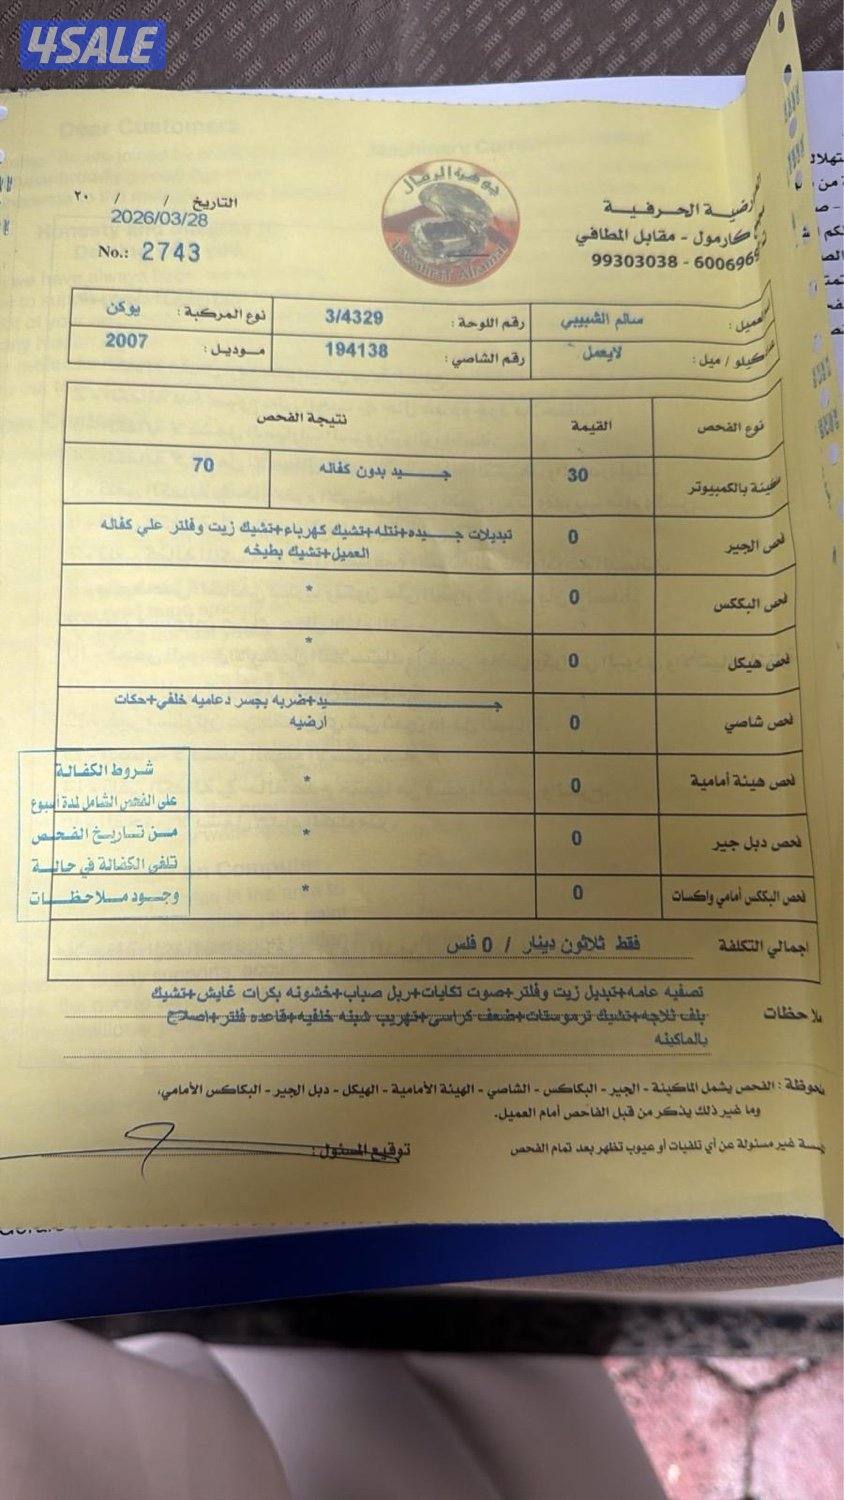 4SALE
جوهرة الرمال
Jawharat Alramal
الحرفية
كارمول - مقابل المطافي
99303038 - 6006969
التاريخ / / ٢٠
2026/03/28
No.: 2743
سالم الشبيبي
رقم اللوحة : 3/4329
نوع المركبة : يوكن
كيلو / ميل : لايعمل
رقم الشاصي : 194138
موديل : 2007
نوع الفحص القيمة نتيجة الفحص
بالكمبيوتر 30 جيد بدون كفاله 70
فحص الجير 0 تبديلات جيده+نتله+تشيك كهرباء+تشيك زيت وفلتر علي كفاله
العميل+تشيك بطيخه
فحص البككس 0 *
فحص هيكل 0 *
فحص شاصي 0 جيد+ضربه بجسر دعاميه خلفي+حكات
ارضيه
فحص هيئة أمامية 0 *
فحص دبل جير 0 *
فحص البككس أمامي واكسات 0 *
شروط الكفالة
على الفحص الشامل لمدة أسبوع
من تاريخ الفحص
تلغى الكفالة في حالة
وجود ملاحظات
اجمالي التكلفة فقط ثلاثون دينار / 0 فلس
ملاحظات تصفيه عامه+تبديل زيت وفلتر+صوت تكايات+ربل صباب+خشونه بكرات غايش+تشيك
بلف ثلاجه+تشيك ترموستات+ضعف كراسي+تهريب شبنه خلفيه+قاعده فلتر+اصلاح
بالماكينه
ملحوظة : الفحص يشمل الماكينة - الجير - البكاكس - الشاصي - الهيئة الأمامية - الهيكل - دبل الجير - البكاكس الأمامي،
وما غير ذلك يذكر من قبل الفاحص أمام العميل.
غير مسئولة عن أي تلفيات أو عيوب تظهر بعد تمام الفحص
توقيع المسئول :